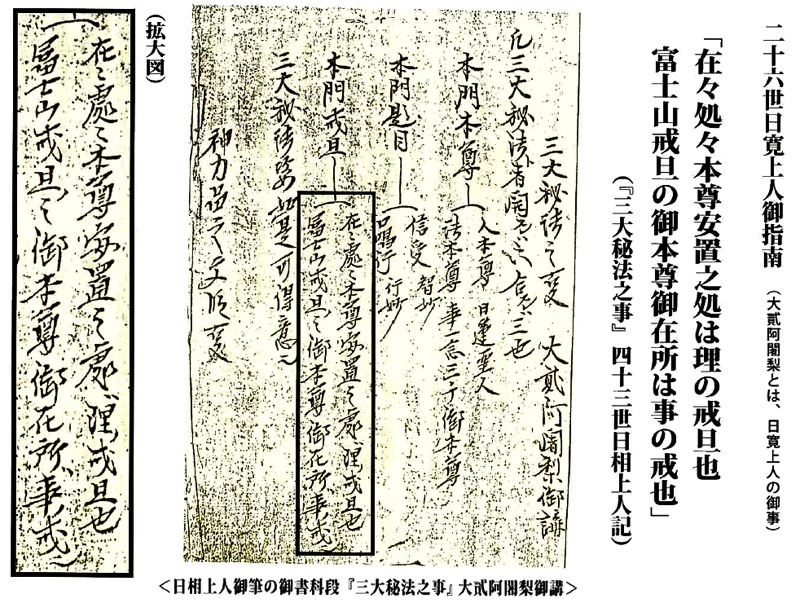 二十六世日寛上人御指南 (大貳阿闍梨とは、日寛上人の御事)
「在々処々本尊安置之処は理の戒旦也
富士山戒旦の御本尊御在所は事の戒也」
(『三大秘法之事』 四十三世日相上人記)
三大秘法之事 大貳阿闍梨御講
凡三大秘法者開
本門本尊
人本尊 日蓮聖人
法本尊 事一念三千御本尊
本門題目
信受 智妙
唱行 行妙
本門戒旦
在々處々本尊安置之處理戒旦也
冨士山戒旦之御本尊御在所事戒也
三大秘法姿如是可得意也
神力品之
(拡大図)
在々處々本尊安置之處理戒旦也
冨士山戒旦之御本尊御在所事戒也
<日相上人御筆の御書科段『三大秘法之事』大貳阿闍梨御講>